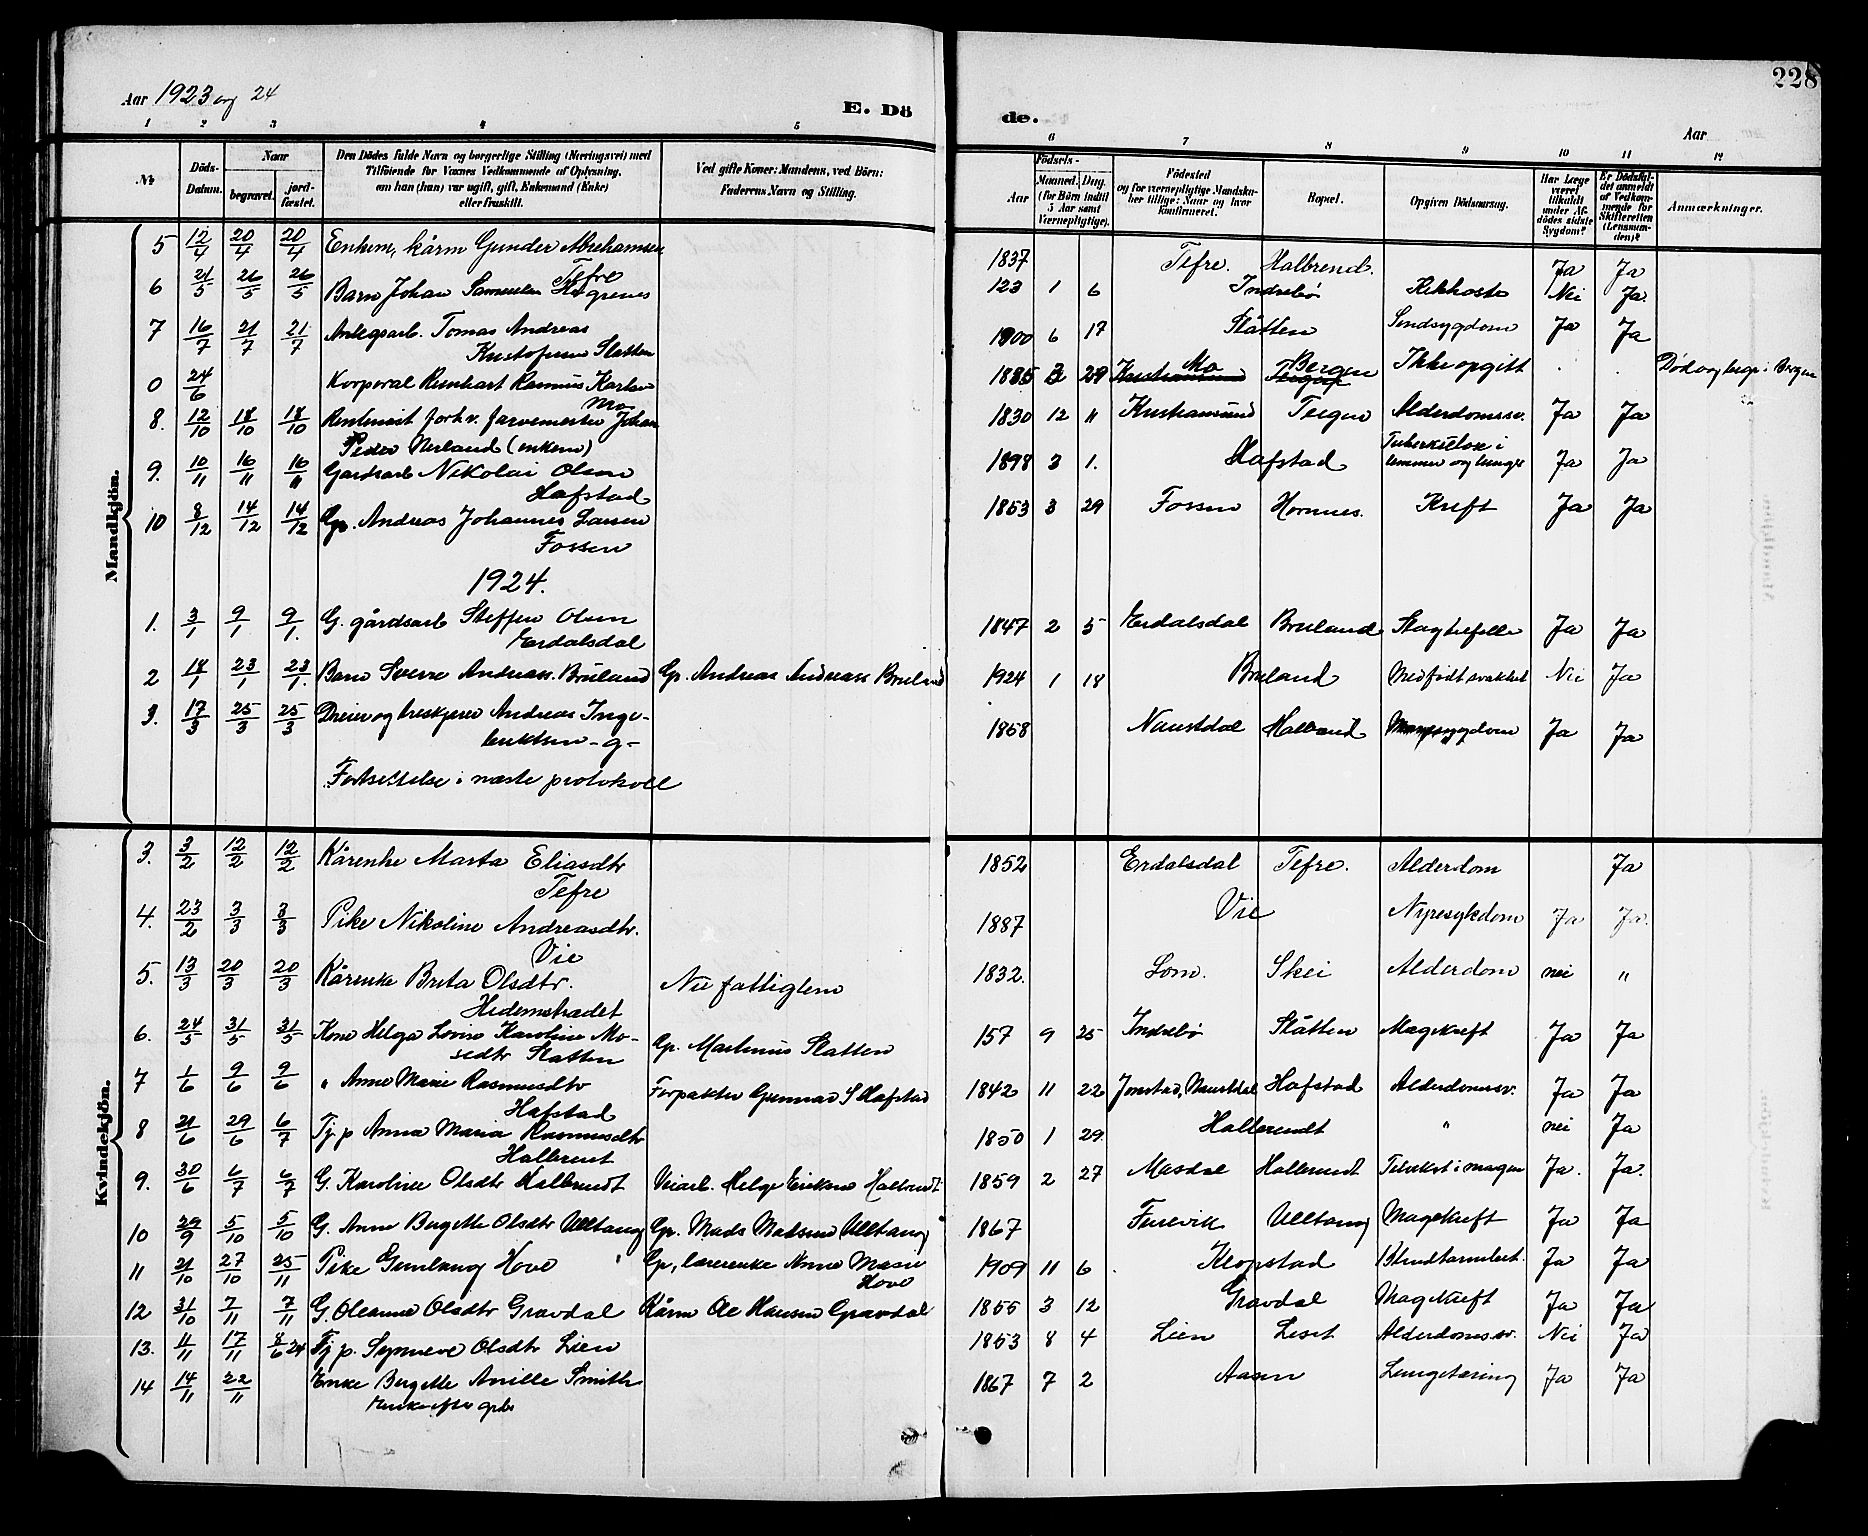 Aar 1923 og 24
E. Dö
de.
228
Aar
1 2 3 4 5 6 7 8 9 10 11 12
No.
Döds-Datum.
Naar
begravet.
jord-fæstet.
Den Dödes fulde Navn og borgerlige Stilling (Næringsvei) med
Tilföiende for Voxnes Vedkommende af Oplysning,
om han (hun) var ugift, gift, Enkemand (Enke)
eller fraskilt.
Ved gifte Koner: Mandens, ved Börn:
Faderens Navn og Stilling.
Födsels-
Aar
Maaned. Dag.
(for Börn indtil
5 Aar samt
Værnepligtige).
Födested
og for værnepligtige Mandska-
ber tillige: Naar og hvor
konfirmeret.
Bopæl.
Opgiven Dödsaarsag.
Har Læge
været
tilkaldt
under Af-
dödes sidste
Sygdom?
Er Dödsfal-
det anmeldt
af Vedkom-
mende for
Skifteretten
(Lensman-
den)?
Anmærkninger.
Mandkjön.
5 12/4 20/4 20/4 Enkem, kårm Gunder Abrahamsen
Tefre 1837 Tefre. Halbrend. Ja Ja
6 21/5 26/5 26/5 Barn Johan Samuelsen 123 1 6 Indrebø Kikhoste Nei Ja.
7 16/7 21/7 21/7 Anlegsarb. Tomas Andreas
Kristofersen Slatten 1900 6 17 Slåtten Sindsygdom Ja Ja
0 24/6 Korporal Reinhart Rasmus Karlsen
Mo 1885 3 29 Mo Bergen Ikke opgitt . . Død og begr. i Bergen
8. 12/10 18/10 18/10 Rentenist forhv. farvemester Johan
Peder Nerland (enkem) 1830 12 " Kristiansund Teigen Alderdomssv. Ja Ja
9. 10/11 16/11 16/11 Gardsarb Nikolai Olsen
Hafstad 1898 3 1. Hafstad Tuberkulose i
lemmer og lunge Ja Ja
10 8/12 14/12 14/12 Gp. Andreas Johannes Larsen
Fossen 1853 3 29 Fossen Hornnes. Kreft Ja Ja
1924.
1. 3/1 9/1 9/1. G. gårdsarb Steffen Olsen
Erdalsdal 1847 2 5 Erdalsdal Bruland Slagtilfelle Ja Ja
2 18/1 23/1 23/1. Barn Sverre Andreass. Bruland Gp. Andreas Andreass Bruland 1924 1 18 Bruland Medfødt svakhet Nei Ja
3. 17/3 25/3 25/3 Dreier og treskjerer Andreas Inge-
briktsen -g- 1858 Naustdal Halbrend Ja Ja
Fortsettelse i næste protokoll
Kvindekjön.
3. 3/2 12/2 12/2 Kårenke Marta Eliasdtr
Tefre 1852 Erdalsdal Tefre. Alderdom Ja
4. 23/2 3/3 3/3 Pike Nikoline Andreasdtr.
Vie 1887 Vie Nyresykdom Ja Ja.
5. 13/3 20/3 20/3 Kårenke Brita Olsdtr.
Nei fattiglem 1832. Lom. Skei Alderdom nei "
6. 24/5 31/5 31/5 Kone Helga Lovise Karoline Mo-
sedtr Slatten Gp. Martinus Slatten 157 9 25 Indrebø Slåtten Magekreft Ja Ja
7 1/6 9/6 9/6 " Anne Marie Rasmusdtr
Hafstad Forpakter Gunnar S Hafstad 1842 11 22 Jonstad, Naustdal Hafstad Alderdomssv. Ja Ja
8 21/6 29/6 6/7 Tj. p Anna Maria Rasmusdtr
Halbrent 1850 1 29. Halbrendt " nei Ja
9. 30/6 6/7 6/7 G. Karoline Olsdtr Halbrendt Veiarb. Helge Eriksen Halbrendt 1859 2 27 Masdal Halbrendt i magen Ja. Ja.
10 29/9 5/10 5/10 G. Anne Bergitte Olsdtr Ulltang Gp. Mads Madsen Ulltang 1867 Furevik Ulltang Magekreft Ja Ja
11 21/10 27/10 25/11 Pike Gunlaug Hove Gp, lærerenke Anne Marie
Hove 1909 11 6 Klopstad Blindtarmbet. Ja Ja
12 31/10 7/11 7/11 G. Oleanne Olsdtr Gravdal Kårm Ole Hansen Gravdal 1855 3 12 Gravdal Magekreft Ja Ja
13. 11/11 17/11 8/6 24 Tj p. Synneve Olsdtr Lien 1853 8 4 Lien Leset Alderdoms.sv. Nei Ja
14 14/11 22/11 Enke Bergitte Amille Smith
Enke efter 1867 7 2 Aasen Lungetæring Ja Ja